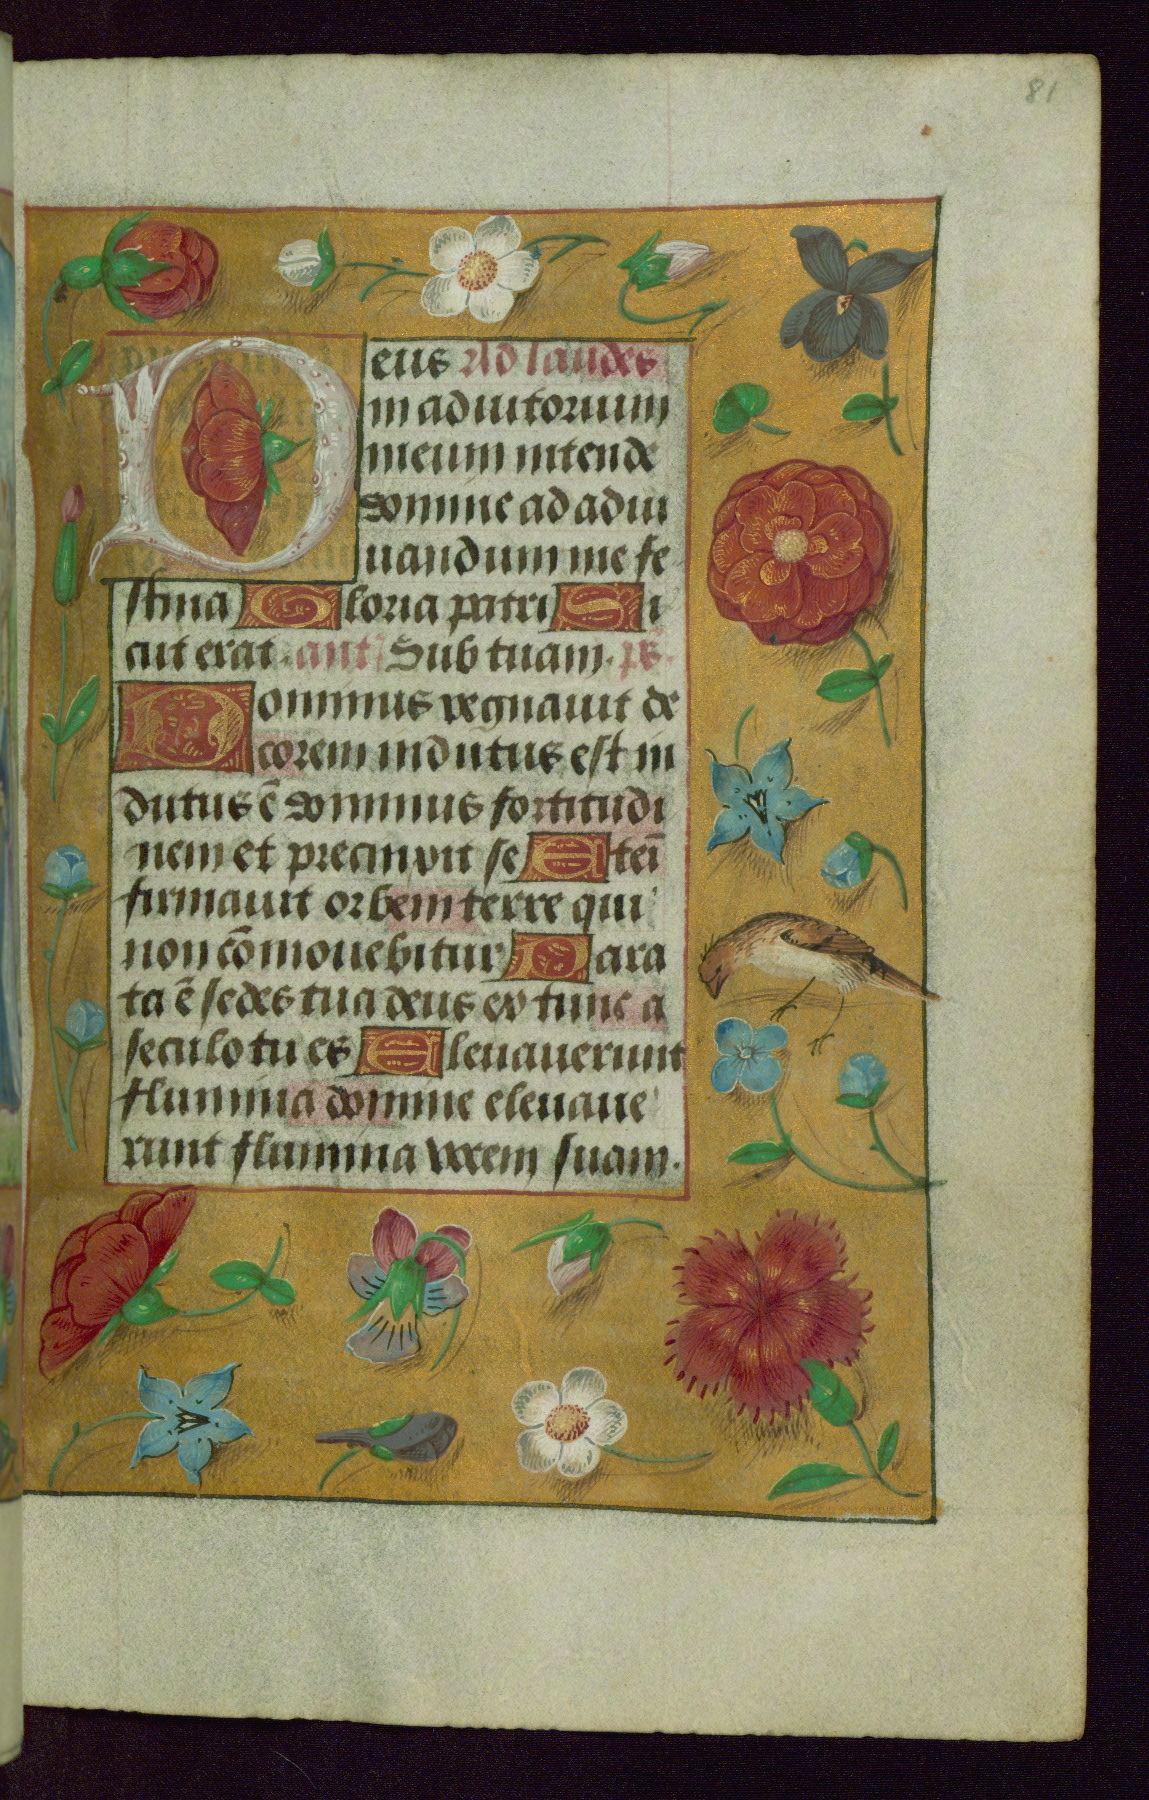 81
Deus Ad laudes
in adiutorium
meum intende
domine ad adiu
uandum me fe
stina Gloria patri Si
cut erat. ant Sub tuam. ps.
Dominus regnauit de
corem indutus est in
dutus ē dominus fortitudi
nem et precinxit se Eteī
firmauit orbem terre qui
non cōmouebitur Para
ta ē sedes tua deus ex tunc a
seculo tu es Eleuauerunt
flumina domine eleuaue
runt flumina vocem suam.